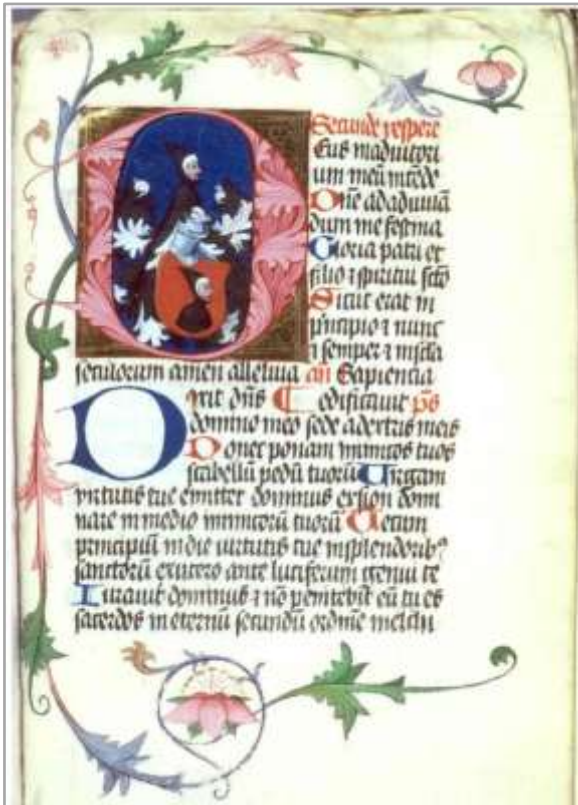 Secunde vespere
Eus in adiutori
um meū intēde
Dn̄e ad adiuuā
dum me festina
Gloria patri et
filio ⁊ spiritui sctō
Sicut erat in
p̄ncipio ⁊ nunc
⁊ semper ⁊ in scła
seculorum amen alleluia an Sapiencia
D ixit dn̄s edificauit ps̄
domino meo sede a dextris meis
Donec ponam inimicos tuos
scabellū pedū tuorū Uirgam
virtutis tue emittet dominus ex sion domi
nare in medio inimicorū tuorū Tecum
principiū in die uirtutis tue in splendorib⁹
sanctorū ex utero ante luciferum genui te
Iurauit dominus ⁊ nō penitebit eū tu es
sacerdos in eternū secundū ordinē melchi